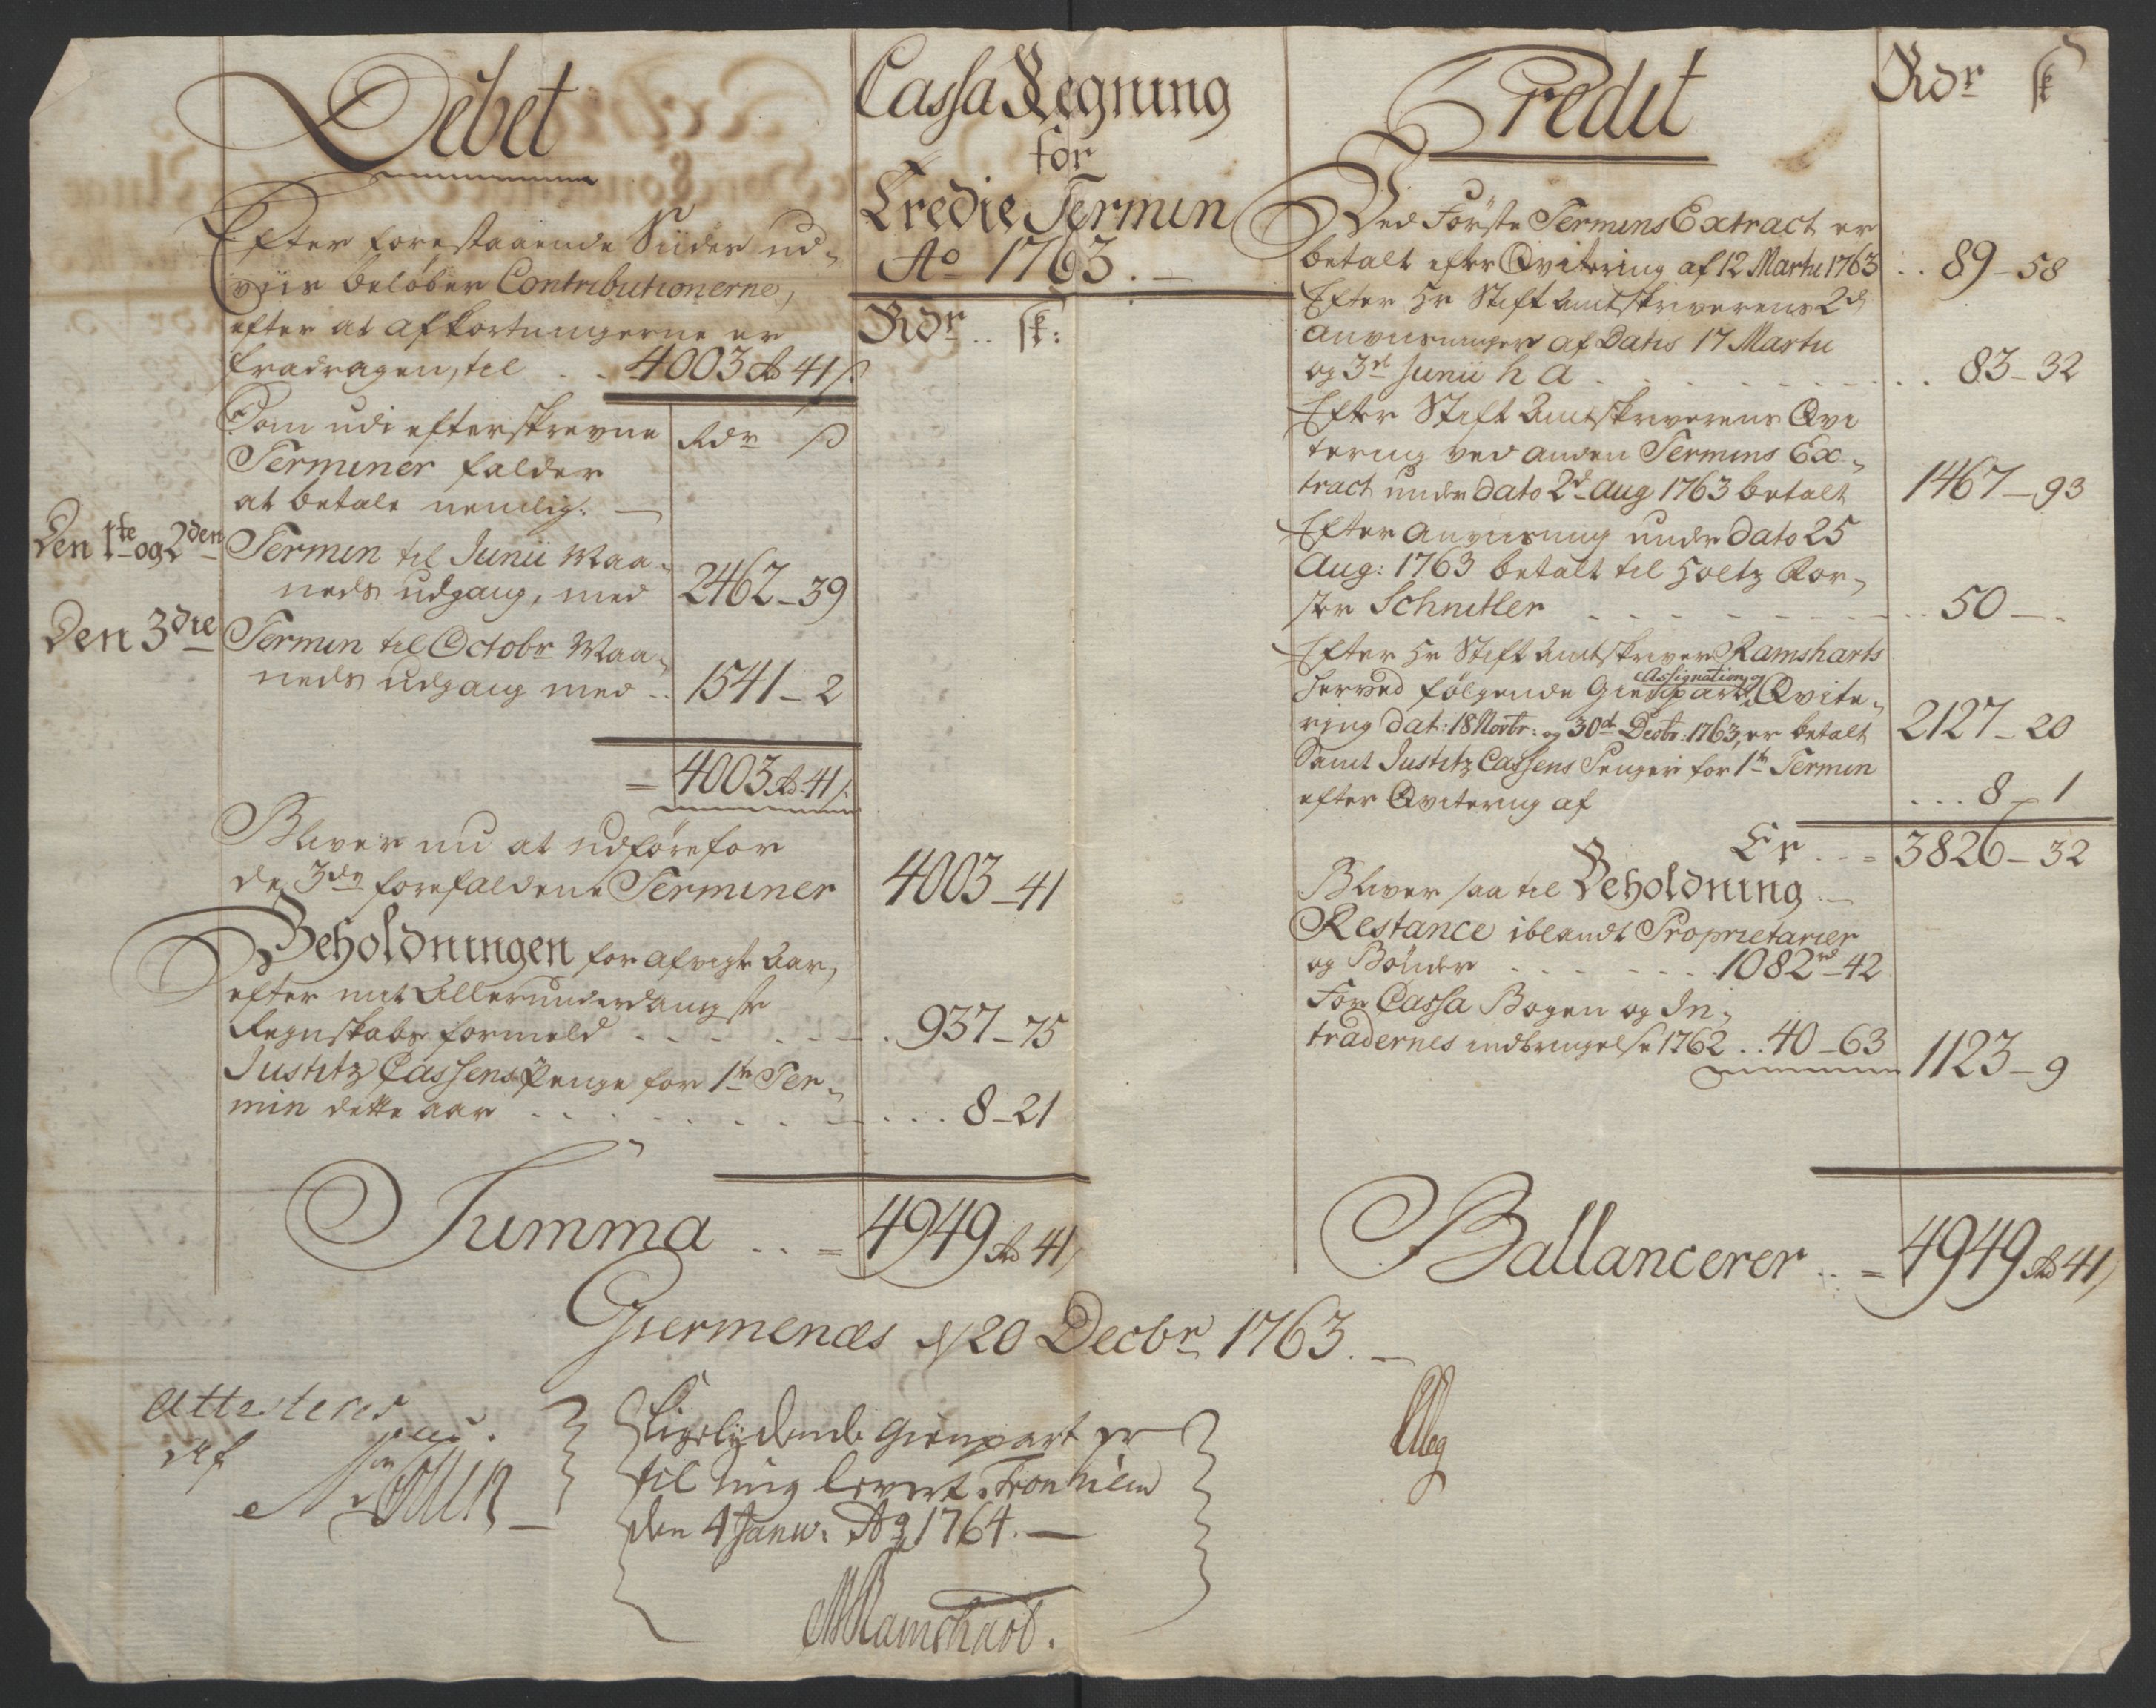 Debet
Cassa Regning
for
Tredie Termin
Ao 1763. —
Rdr .. sk:
Efter forestaaende Siider ud-
viis beløber Contributionerne,
efter at afkortningerne er
fradragen, til . . 4003 Rd 41 s.
Som udi efterskrevne
Terminer falder
at betale nemlig: —
Rdr s
Den 1te og 2den Termin til Junii Maa-
neds udgang, med 2462 – 39
Den 3die Termin til Octobr Maa-
neds udgang med .. 1541 – 2
= 4003 Rd 41 s.
Bliver nu at udføre for
de 3de forefaldene Terminer 4003 – 41
Beholdningen for afvigte aar,
efter mit Allerunderdanigste
Regnskabs formeld . . . . . . 937 – 75
Justitz Cassens Penge for 1te Ter-
min dette aar . . . . . . . . . 8 – 21
Summa . . = 4949 Rd 41 s
Credit
Rdr sk
Ved Første Termins Extract er
betalt efter Qvitering af 12 Martii 1763 . . 89 – 58
Efter Hr Stiftamtskriverens 2de
anviisninger af Datis 17 Martii
og 3de Junii h a . . . . . . . . 83 – 32
Efter Stiftamtskriverens Qvi
tering ved anden Termins Ex-
tract under dato 2d Aug 1763 betalt 1467 – 93
Efter anviisning under dato 25
Aug: 1763 betalt til Holtz For-
ster Schnitler . . . . . . . . . 50 – -
Efter Hr Stiftamtskriver Ramsharts
herved følgende Assignation og Gienparts Qvite-
ring dat: 18 Novbr: og 30d Decbr: 1763, er betalt 2127 – 20
Samt Justitz Cassens Penger for 1te Termin
efter Qvitering af . . . 8 – 1
Er . . = 3826 – 32
Bliver saa til Beholdning . —
Restance iblandt Proprietarier
og Bønder . . . . . . . 1082 rd – 42
For Cassa Bogen og In-
tradernes indbringelse 1762 . . 40 – 63
1123 – 9
Ballancerer . . = 4949 Rd 41 s
Giermenæs d 20 Decbr 1763. —
Attesteres
Af
Ligelydende Gienpart er
til mig levert. Tronhiem
den 4 Janu. Ao 1764. —
MRamshart.